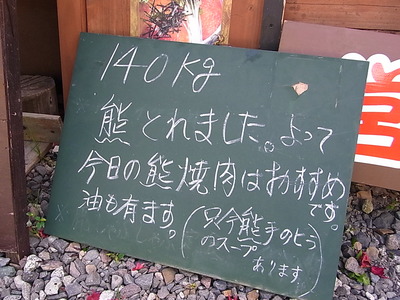 140kg
熊とれました。よって
今日の熊焼肉はおすすめです。
油も有ます。
(只今熊手のとう
のスープ
あります)